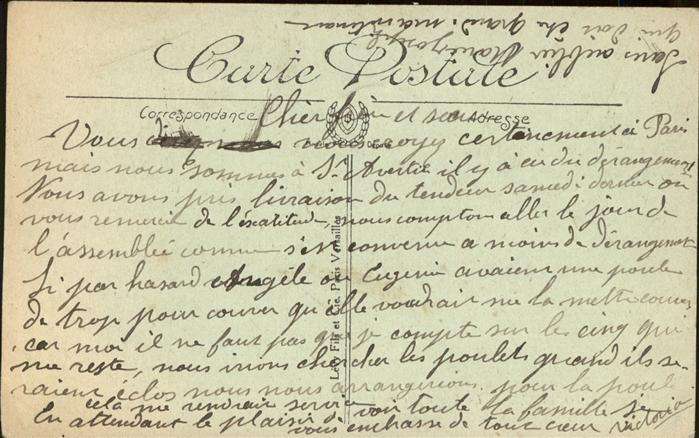 Carte Postale
Correspondance
Adresse
Cher frère et sœur
Vous nous croyez certenement à Paris
mais nous sommes à St Avertin il y a eu du dérangement
Nous avons pris livraison du tendeur samedi dernier on
vous remercie de l'exatitude, nous compton aller le jour de
l'assemblée comme s'est convenu a moins de dérangement
Si par hasard Angèle ou Eugenie avaient une poule
de trop pour couver qu'elle voudrait me la mettre couver
car moi il ne faut pas que je compte sur les cinq qui
me reste, nous irions chercher les poulets quand ils se-
raient éclos nous nous arrangerions pour la poule
cela me rendrair service
En attendant le plaisir de voir toute la famille je
vous embrasse de tout cœur Victoria
Sans oublier Marie Joseph
qui doit être grand maintenant
Lévy Fils et Cie, Paris Versailles